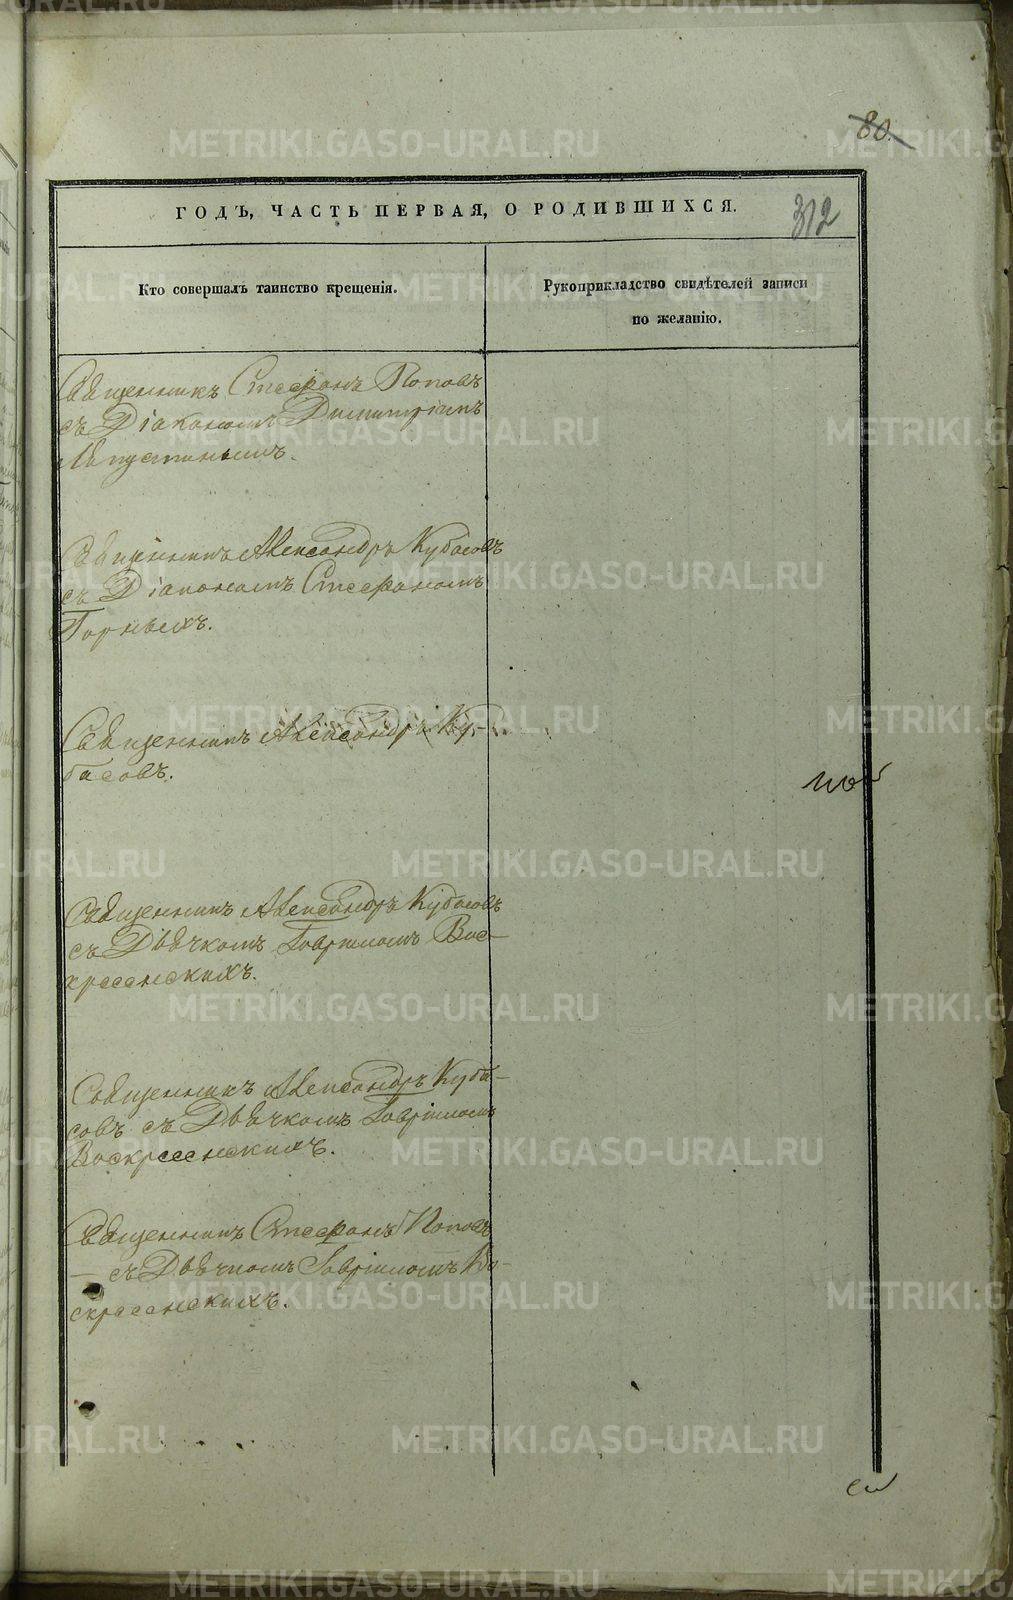 80.
312
ГОДЪ, ЧАСТЬ ПЕРВАЯ, О РОДИВШИХСЯ.
Кто совершалъ таинство крещенія.
Рукоприкладство свидѣтелей записи
по желанію.
Священникъ Стефанъ Поповъ
съ Діакономъ Димитріемъ
Священникъ Александръ Кубасовъ
съ Діакономъ Стефаномъ
Горныхъ.
Священникъ Александръ Ку-
басовъ.
Священникъ Александръ Кубасовъ
съ Дьячкомъ Гавріиломъ Вос-
кресенскихъ.
Священникъ Александръ Куба-
совъ съ Дьячкомъ Гавріиломъ
Воскресенскихъ.
Священникъ Стефанъ Поповъ
— съ Дьячкомъ Гавріиломъ Во-
скресенскихъ.
METRIKI.GASO-URAL.RU